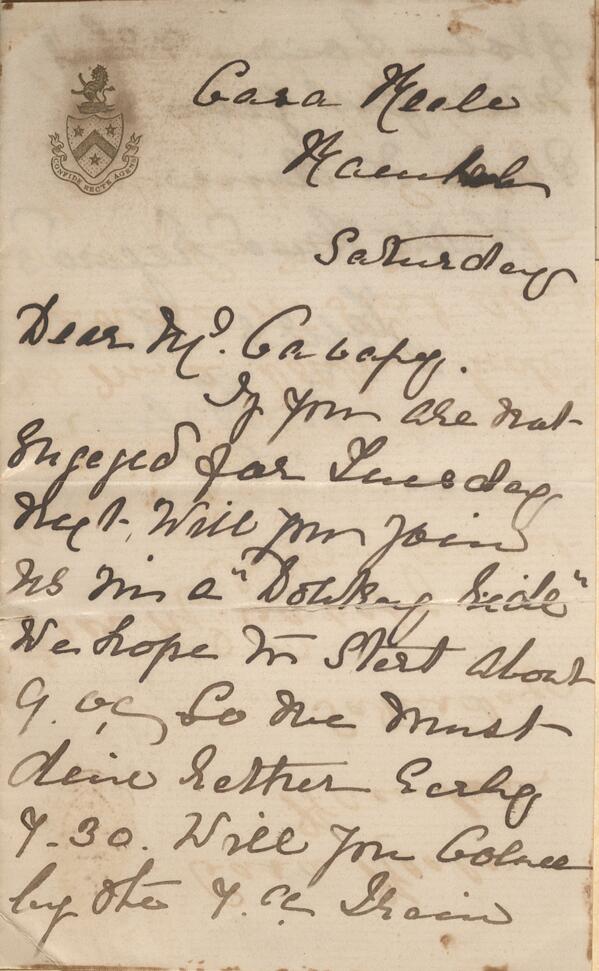 CONFIDE RECTE AGENS
Casa
Saturday
Dear Mr. Cavafy.
If you are not
engaged for Tuesday
next, Will you join
us in a "Donkey Ride"
We hope to start about
9. oc, So we must
dine rather Early
7.30. Will you Come
by the 7. oc Train